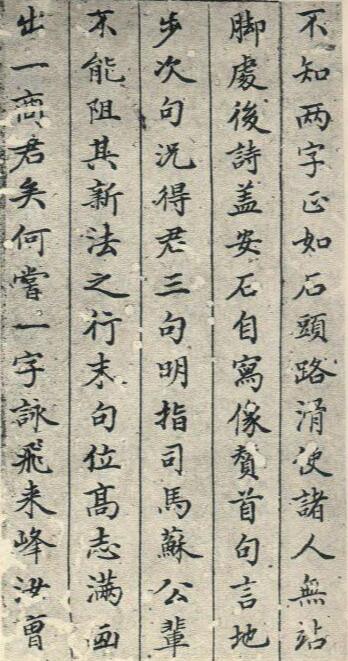 不知两字正如石頭路滑使諸人無站
脚處後詩盖安石自寫像贊首句言地
步次句況得君三句明指司馬蘇公輩
不能阻其新法之行末句位高志滿画
出一商君矣何嘗一字詠飛来峰汝曹